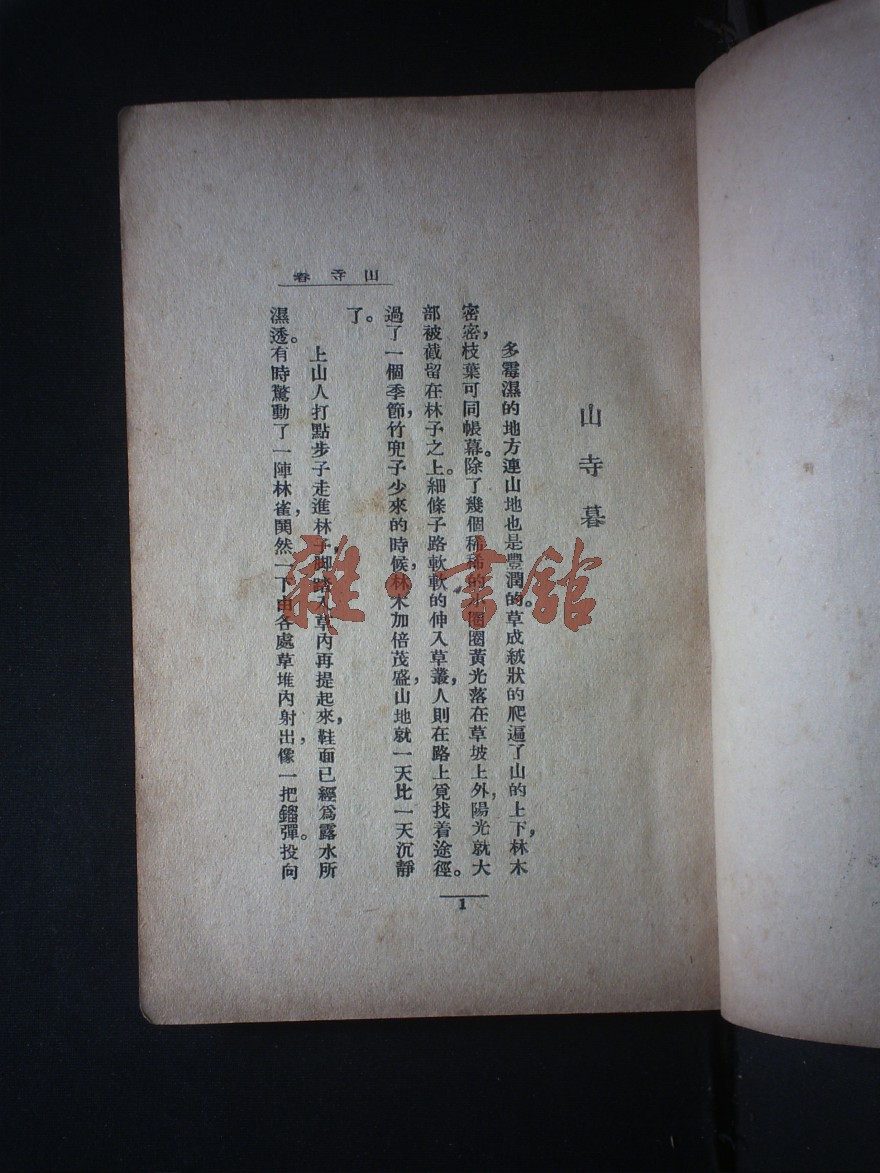 山寺暮
山寺暮
多霉濕的地方連山地也是豐潤的。草成絨狀的爬遍了山的上下，林木
密密，枝葉可同帳幕。除了幾個稀稀的小圈圈黃光落在草坡上外，陽光就大
部被截留在林子之上。細條子路軟軟的伸入草叢，人則在路上覓找着途徑。
過了一個季節，竹兜子少來的時候，林木加倍茂盛，山地就一天比一天沉靜
了。
上山人打點步子走進林子，脚踏入草內再提起來，鞋面已經爲露水所
濕透。有時驚動了一陣林雀，閧然一下由各處草堆內射出，像一把鎦彈。投向
1
雜·書館